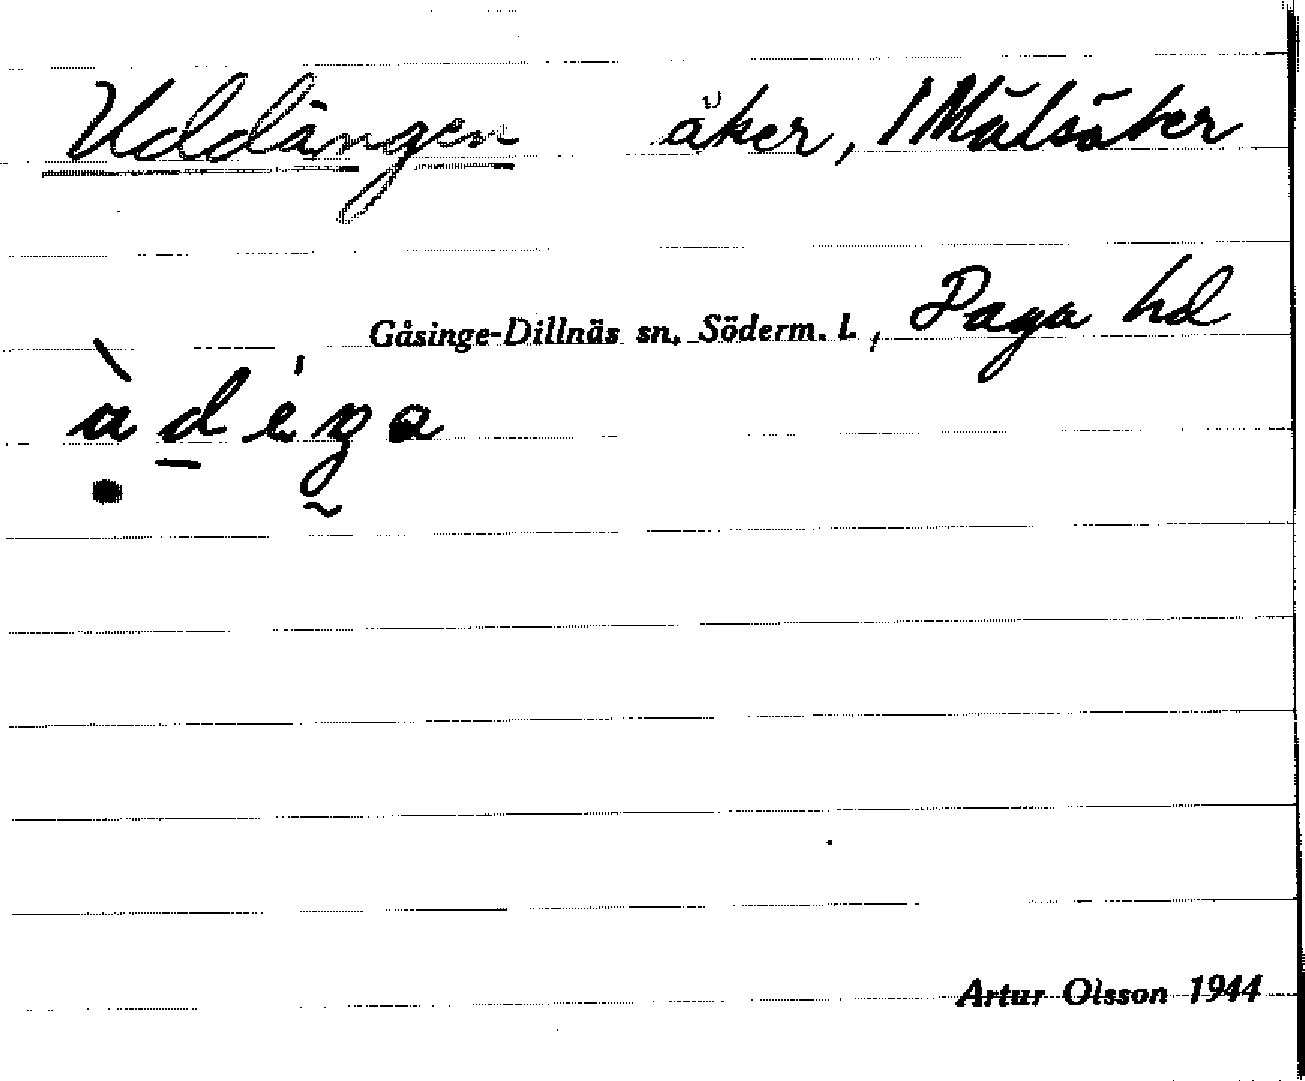 Uddängen åker, 1 Mälsåker
Gåsinge-Dillnäs sn, Söderm. l., Daga hd
Artur Olsson 1944